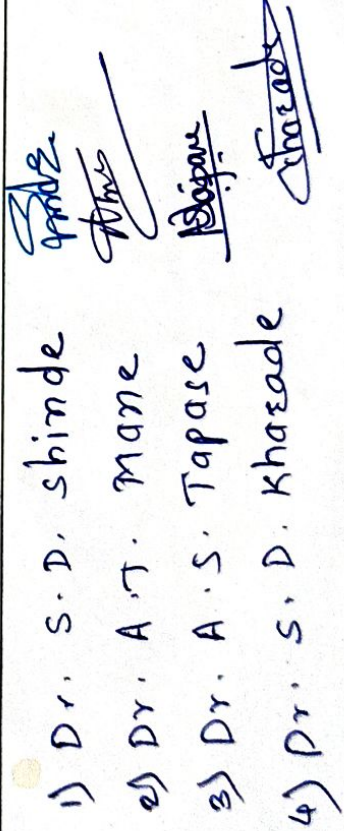 1) Dr. S. D. Shinde
2) Dr. A. T. Mane
3) Dr. A. S. Tapase
4) Dr. S. D. Kharade